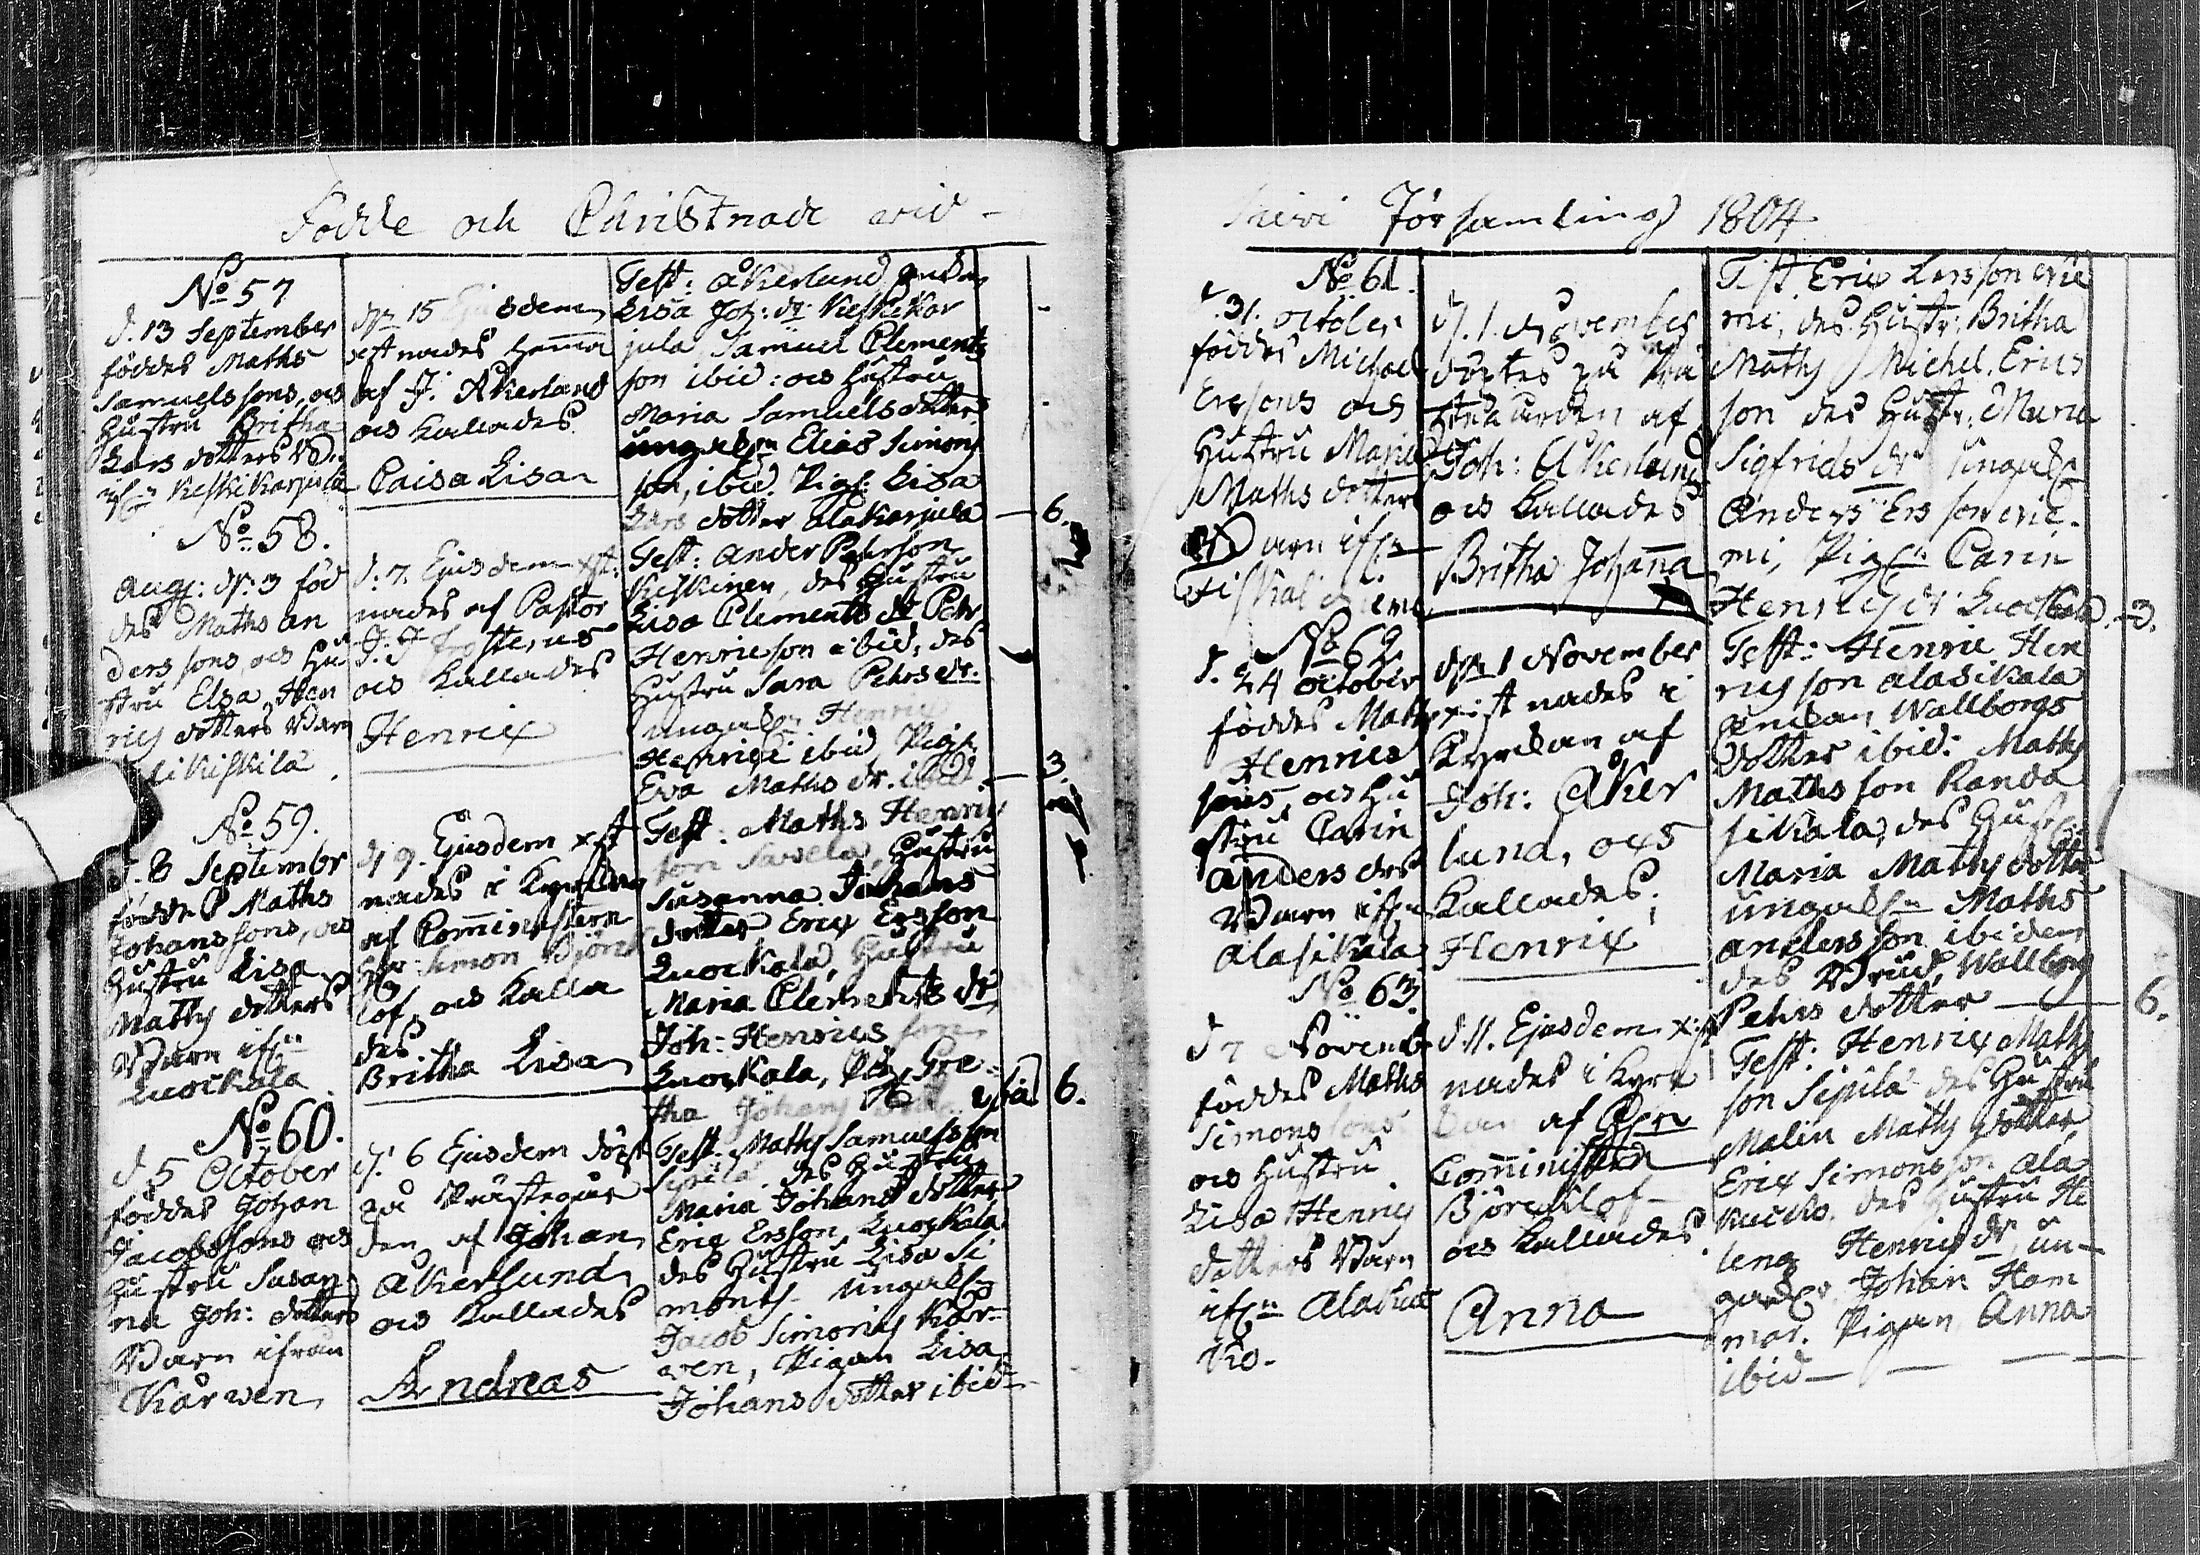 Födde och Christnade wid
No 57
d. 13 September
föddes Maths
Samuelssons, och
Hustru Britha
Lars dotters
Keskikarjula
dn 15 Ejusdem
xstnades hema
af J. Åkerlund
och kallades
Caisa Lisa
Test: Åkerlund,
Lisa Joh: dr Keskikar
jula Samuel Clements
son ibid: och Hustru
Maria Samuelsdotter
ungdln Elias Simons
son, ibid. Pig: Lisa
Lars dotter Alakarjula
6.
No 58.
Aug: dn: 3 föd
des Maths An
ders sons, och Hu
stru Elsa Hen
rics dotters Barn
d: 7. Ejusdem xst:
nades af Pastor
J: J. Frosterus
och kallades
Henric
Test: Ander Pehrson
Keskinen, des Hustru
Lisa Clements dr Pehr
Henricson ibid, des
Hustru Sara Pehrs dr.
ungdln Henric
Henrici ibid Pig:
Eva Maths dr. ibid
3.
No 59.
d. 8 Septembr
föddes Maths
Johanssons, och
Hustru Lisa
Maths dotters
Barn ifrn
Luockala
d 9. Ejusdem xst
nades i Kyrkan
af Cominstern
Hr: Simon Björck
lof, och kalla
des
Britha Lisa
Test: Maths Henric
son Savela, Hustru
Susanna Johans
dotter Eric Ersson
Luockala, Hustru
Maria Clements dr
Joh: Henrics son
Luockala, Pig. Gre
tha Johans
6.
No 60.
d 5 October
föddes Johan
Jacobssons och
Hustru Susan
na Joh: dotters
Barn ifrån
Kårwen
d: 6 Ejusdem döpt
på Prästegår
den af Johan
Åkerlund
och kallades
Andreas
Test. Maths Samuelsson
Sipilä. des Hustru
Maria Johans dotter
Eric Ersson, Luockala
des Hustru Lisa Si
mons. Ungdln
Jacob Simons Kår
wen, Pigan Lisa
Johans dotter ibid
Församling 1804
No 61.
d. 31. October
föddes Michael
Erssons och
Hustru Maria
Maths dotters
Barn ifrn
d. 1. November
döptes på
af
Joh: Åkerlund
och kallades
Britha Johana
Test. Eric Larsson Nie
mi, des Hustr: Britha
Maths Michel Erics
son des Hustr: Maria
Sigfrids dr ungdln
Anders Ersson Nie
mi, Pign Carin
Henrics dr Luockala
3.
No 62
d. 24 October
föddes Maths
Henrics
sons, och Hu
stru Carin
Anders drs
Barn ifrn
Alasikala
dn 1 November
xist nades i
Kyrckan af
Joh: Åker
lund, och
kallades:
Henric
Test: Henric Hen
ricsson Alasikala
Enkan Wallborgs
dotter ibid: Maths
Mathsson Randa
sikala, des Hust
Maria Maths dotter
ungdln Maths
Andersson ibidem
des Brud, Wallborg
Pehrs dotter
6.
No 63.
d 7 Novemb
föddes Maths
Simons sons
och Hustru
Lisa Henrics
dotters Barn
ifrn Alakuc
ko.
d. 11. Ejusdem xst
nades i Kyrc
kan af Hrn
Cominstern
Björcklof
och kallades
Anna
Test: Henric Maths
son Sipilä des Hustru
Malin Maths dotter,
Eric Simonsson Ala
kucko, des Hustru He
lena Henrics dr, un
gdrln Johan Ham
mar. Pigan Anna
ibid